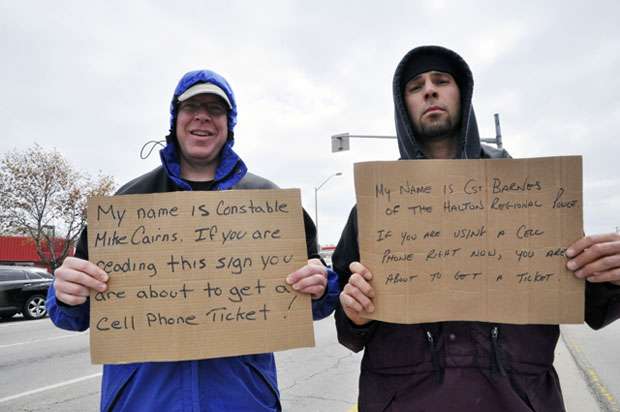 My name is Constable
Mike Cairns. If you are
reading this sign you
are about to get a
Cell Phone Ticket!
My Name is Cst. Barnes
of the Halton Regional Police.
If you are using a cell
phone right now, you are
about to get a ticket.